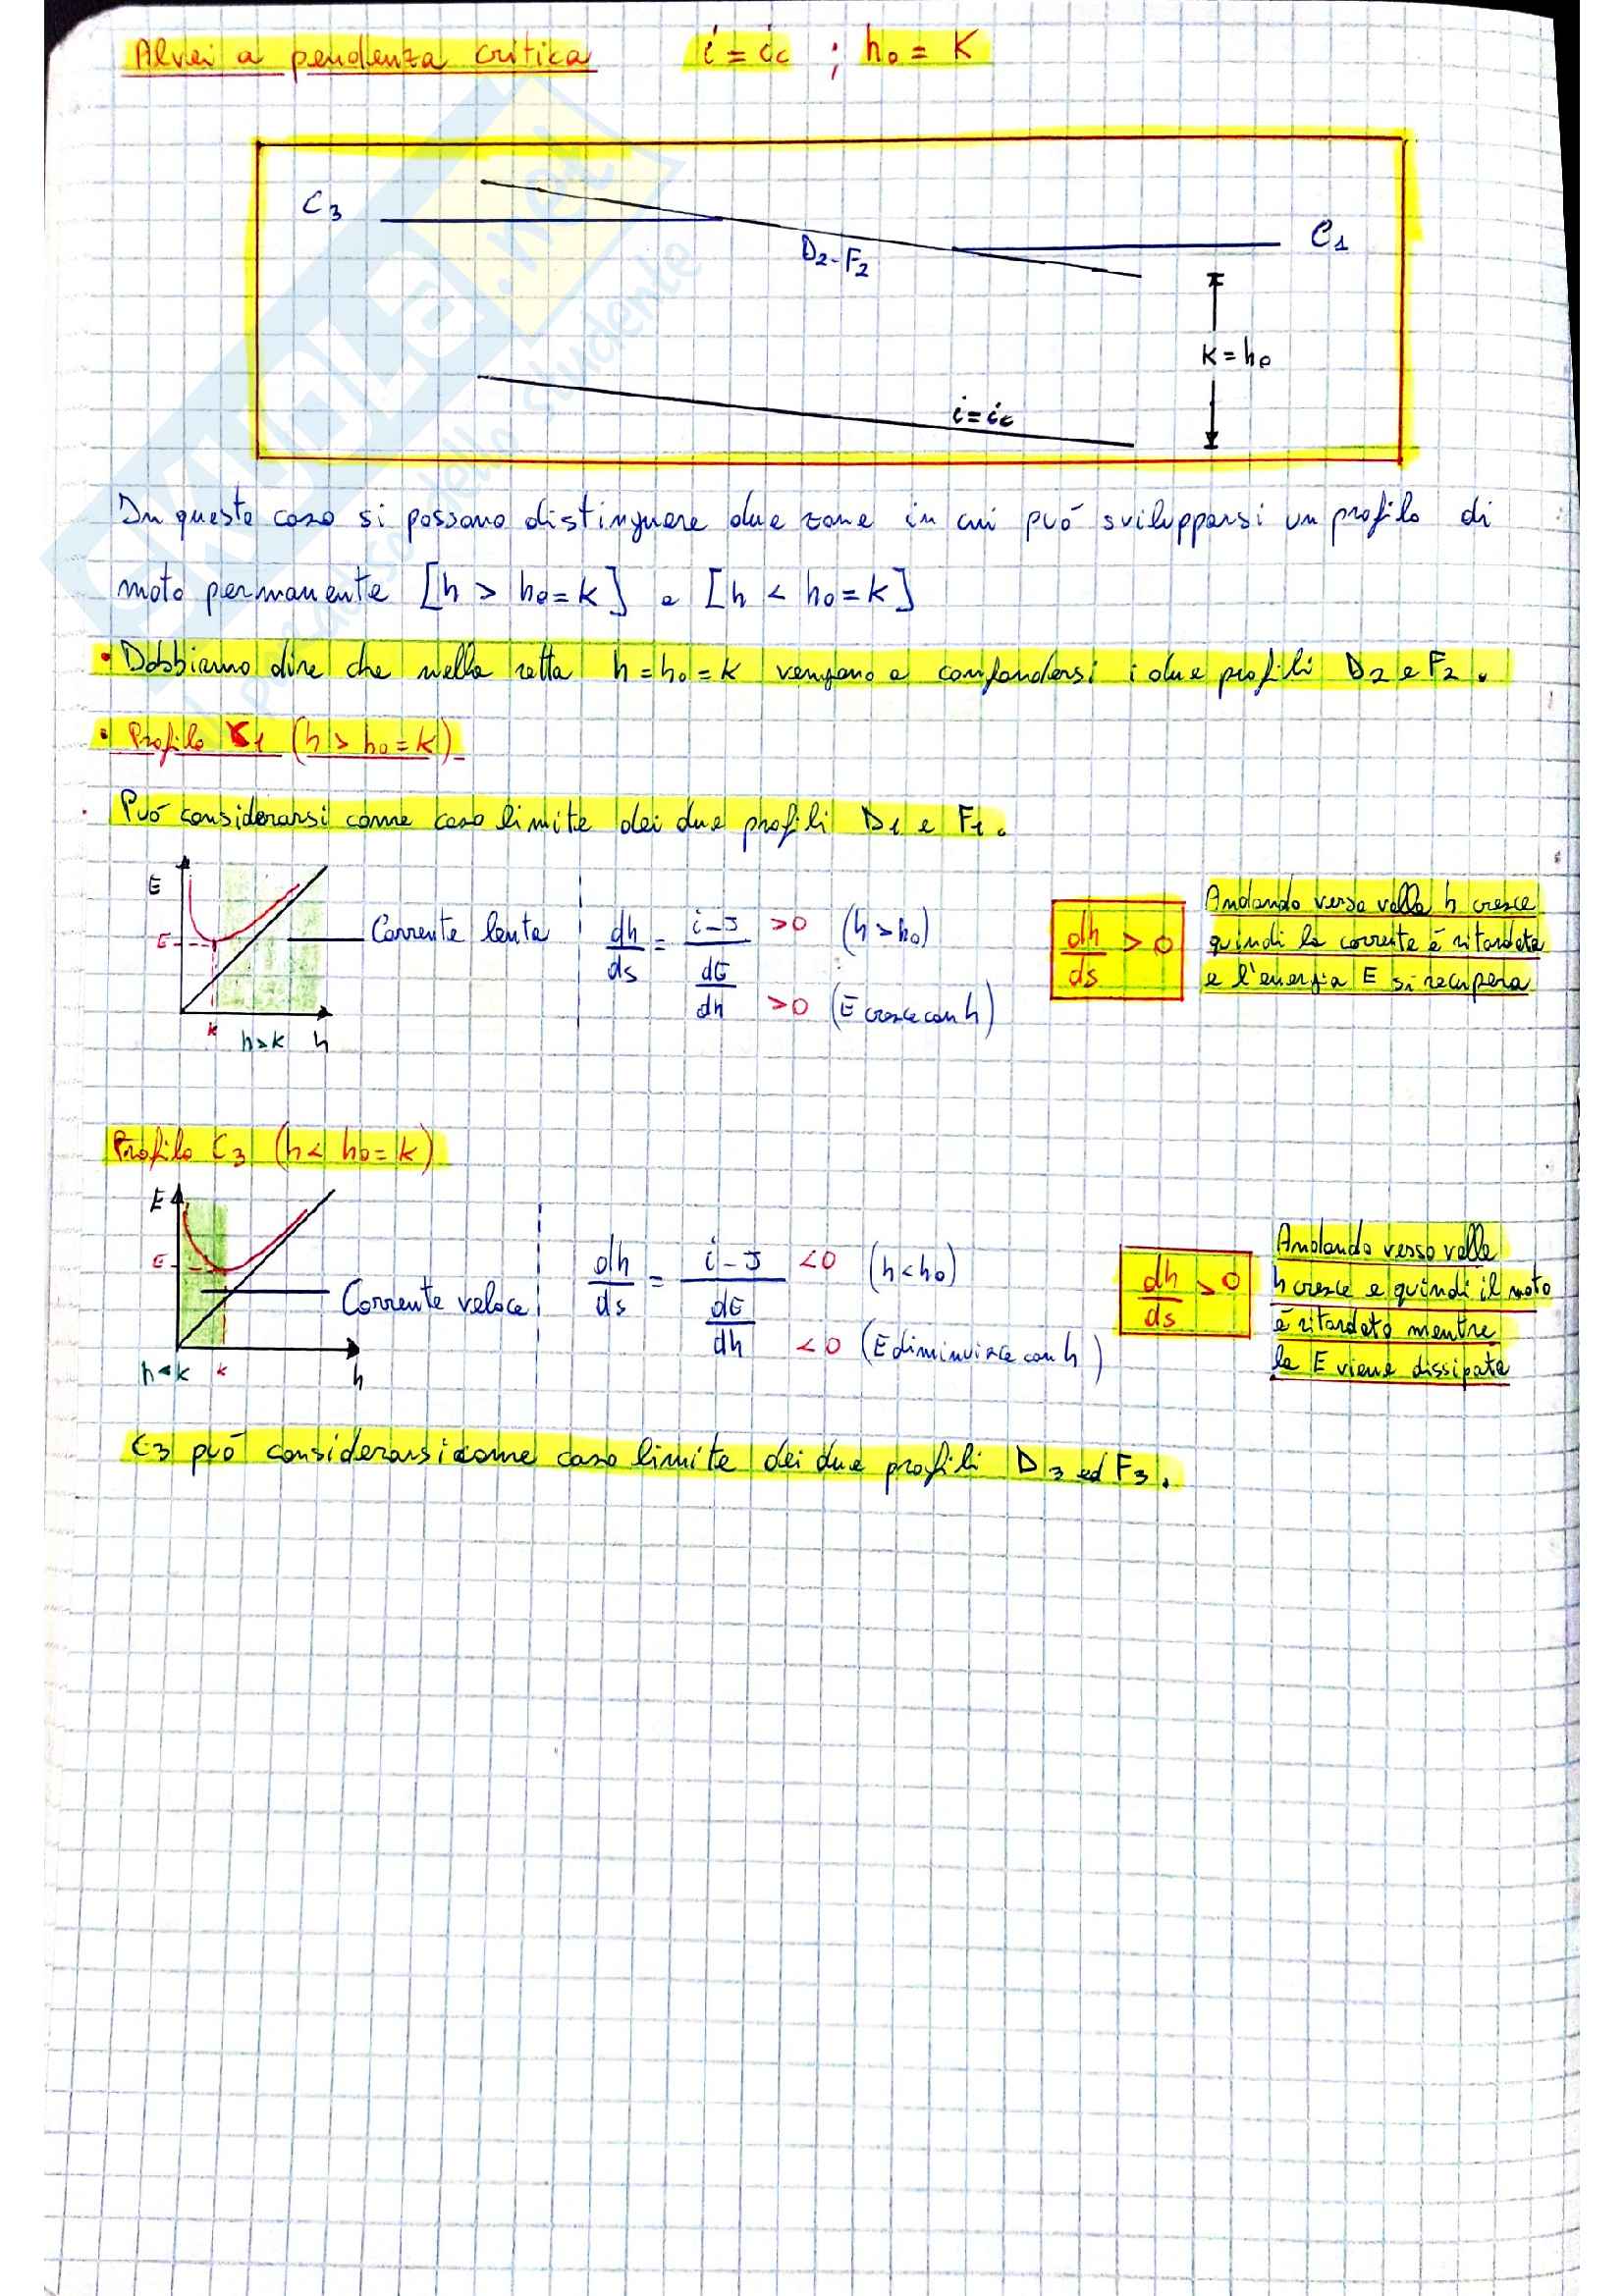 Alvei a pendenza critica i = ic ; h0 = K
C3
D2-F2
C1
K = h0
i = ic
In questo caso si possono distinguere due zone in cui può svilupparsi un profilo di
moto permanente [h > h0 = k] e [h < h0 = k]
• Dobbiamo dire che nella retta h = h0 = k vengono a confondersi i due profili D2 e F2.
• Profilo C1 (h > h0 = k)
Può considerarsi come caso limite dei due profili D1 e F1.
E
E
k
h>k
h
Corrente lenta
dh/ds = (i-J)/(dE/dh) >0 (h > h0)
>0 (E cresce con h)
dh/ds > 0
Andando verso valle h cresce
quindi la corrente è ritardata
e l'energia E si recupera
Profilo C3 (h < h0 = k)
E
E
h<k
k
h
Corrente veloce
dh/ds = (i-J)/(dE/dh) <0 (h < h0)
<0 (E diminuisce con h)
dh/ds > 0
Andando verso valle
h cresce e quindi il moto
è ritardato mentre
la E viene dissipata
C3 può considerarsi come caso limite dei due profili D3 ed F3.
.net
dello studente